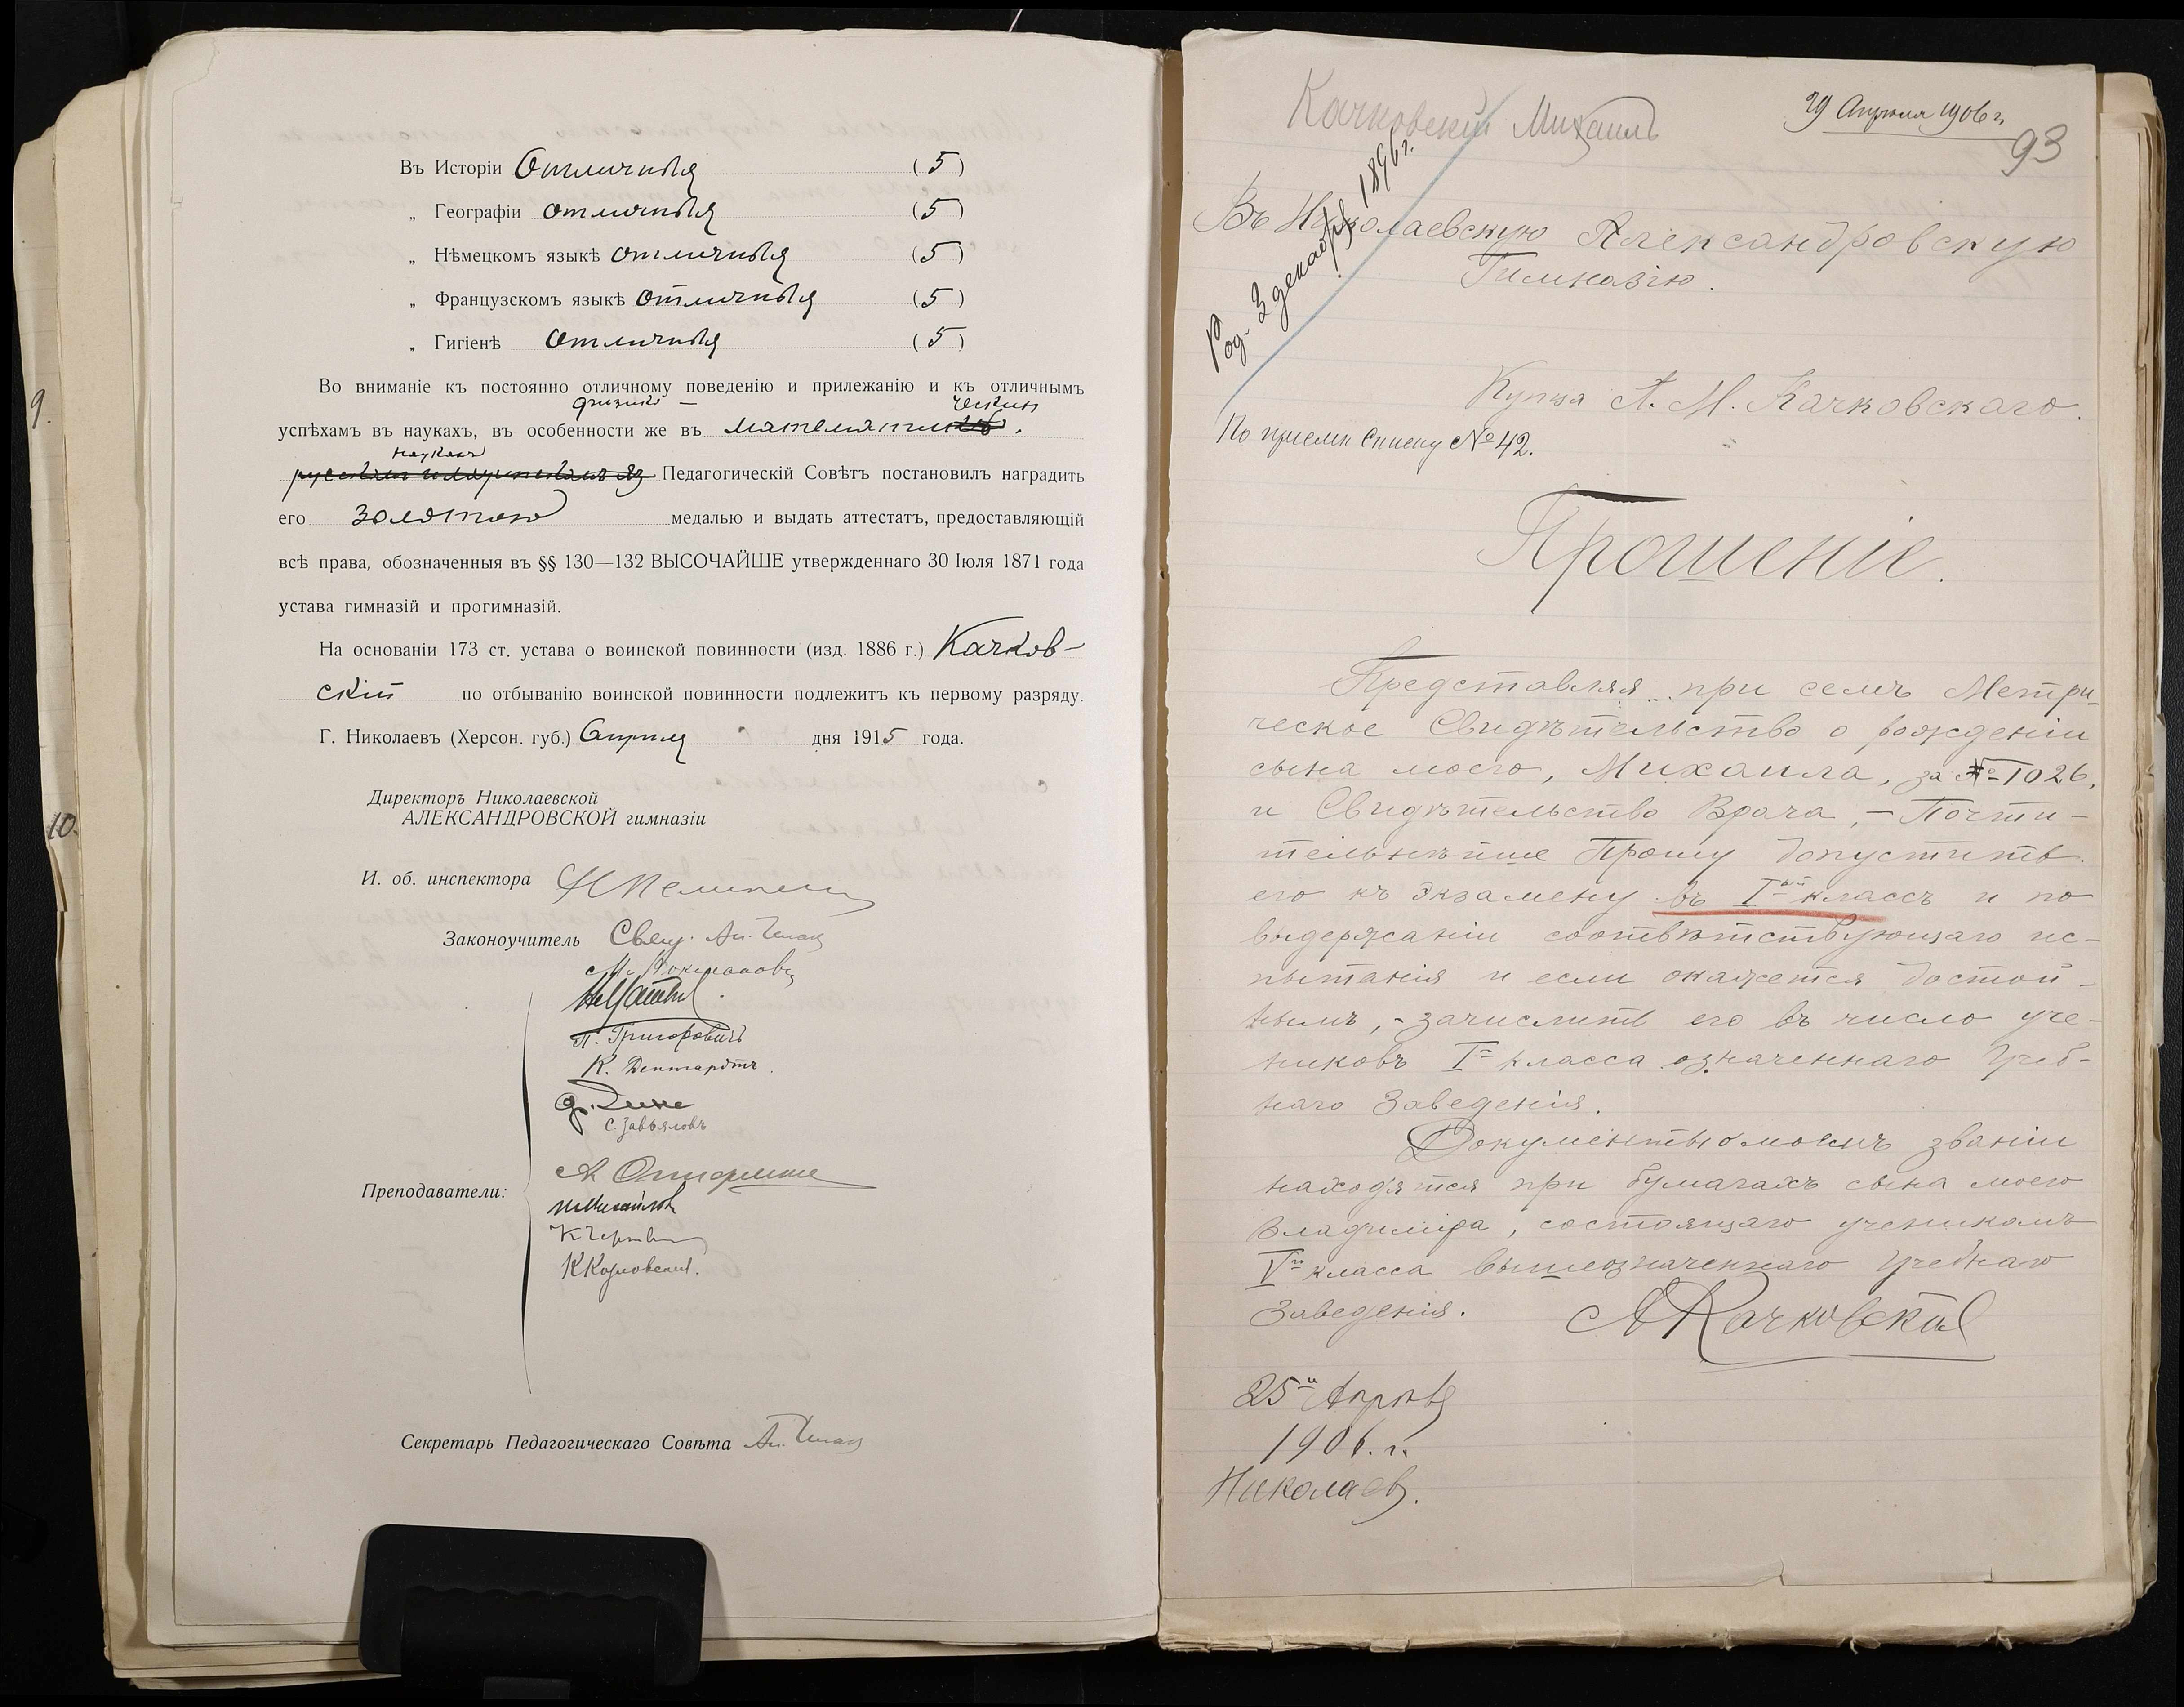 9.
10.
Въ Исторіи Отличныя (5)
„ Географіи отличныя (5)
„ Нѣмецкомъ языкѣ отличныя (5)
„ Французскомъ языкѣ отличныя (5)
„ Гигіенѣ Отличныя (5)
Во вниманіе къ постоянно отличному поведенію и прилежанію и къ отличнымъ
физико – ческих
успѣхамъ въ наукахъ, въ особенности же въ математи
наукахъ
Педагогическій Совѣтъ постановилъ наградить
его золотою медалью и выдать аттестатъ, предоставляющій
всѣ права, обозначенныя въ §§ 130—132 ВЫСОЧАЙШЕ утвержденнаго 30 Іюля 1871 года
устава гимназій и прогимназій.
На основаніи 173 ст. устава о воинской повинности (изд. 1886 г.) Качков-
скій по отбыванію воинской повинности подлежитъ къ первому разряду.
Г. Николаевъ (Херсон. губ.) Апрѣля дня 1915 года.
Директоръ Николаевской
АЛЕКСАНДРОВСКОЙ гимназіи
И. об. инспектора
Законоучитель Свящ. Ал.
П. Григоровичъ
С. Завьяловъ
Преподаватели:
К Козловский.
Секретарь Педагогическаго Совѣта Ал.
Качковскій Михаилъ
29 Апрѣля 1906 г.
93
Род. 3 декабря 1896 г.
Въ Николаевскую Александровскую
Гимназію.
Купца А. М. Качковскаго.
По приемн списку № 42.
Прошеніе.
Представляя при семъ Метри-
ческое Свидѣтельство о рожденіи
сына моего, Михаила, за № 1026,
и Свидѣтельство Врача, – Почти-
тельнѣйше Прошу допустить
его къ экзамену въ Iый классъ и по
выдержаніи соотвѣтствующаго ис-
пытанія и если окажется достой-
нымъ, – зачислить его въ число уче-
никовъ Iго класса означеннаго Учеб-
наго Заведенія.
Документы о моемъ званіи
находятся при бумагахъ сына моего
Владимира, состоящаго ученикомъ
Vго класса вышеозначеннаго Учебнаго
Заведенія. АКачковскій
25го Апрѣля
1906. г.
Николаевъ.